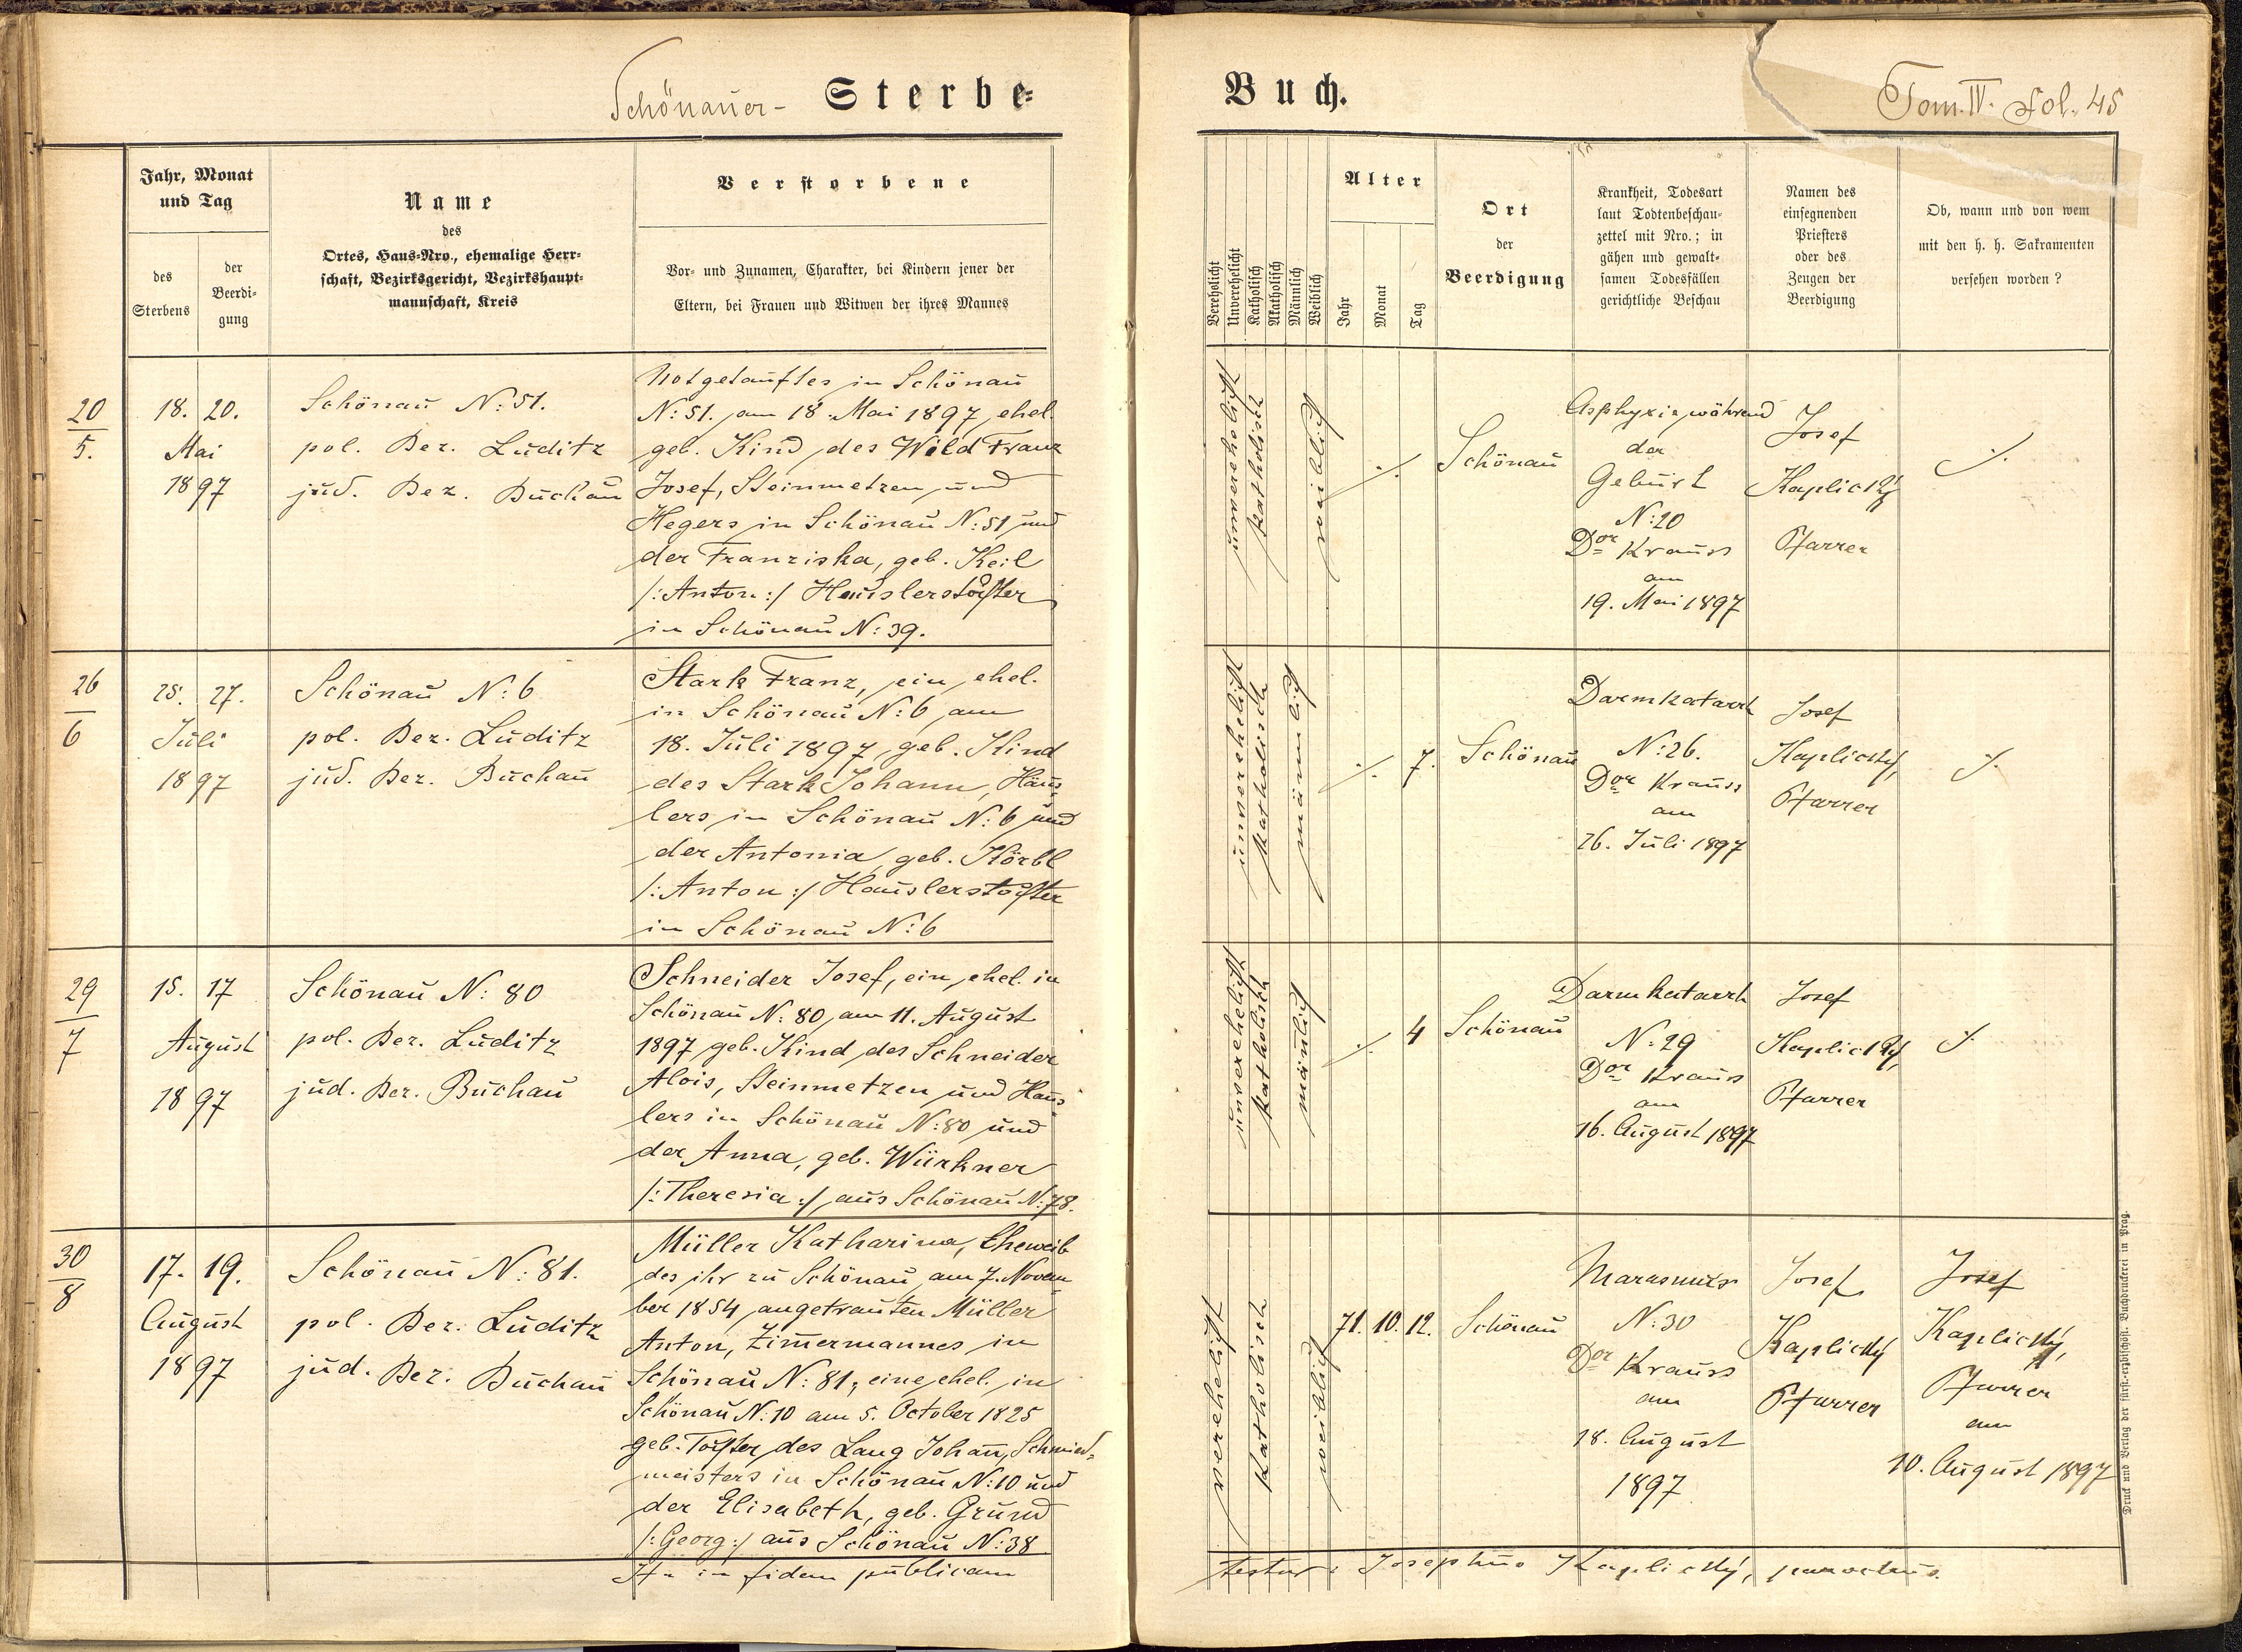 Schönauer- Sterbe-
Jahr, Monat
und Tag
des
Sterbens
der
Beerdi-
gung
Name
des
Ortes, Haus-Nro., ehemalige Herr-
schaft, Bezirksgericht, Bezirkshaupt-
mannschaft, Kreis
Verstorbene
Vor- und Zunamen, Charakter, bei Kindern jener der
Eltern, bei Frauen und Witwen der ihres Mannes
20
5.
18. 20.
Mai
1897
Schönau N: 51.
pol. Bez. Luditz
jud. Bez. Buchau
Notgetauftes in Schönau
N: 51. am 18. Mai 1897 ehel.
geb. Kind des Wild Franz
Josef, Steinmetzen und
Hegers in Schönau N: 51 und
der Franziska, geb. Keil
/: Anton :/ Häuslerstochter
in Schönau N: 39.
26
6
25. 27.
Juli
1897
Schönau N: 6
pol. Bez. Luditz
jud. Bez. Buchau
Stark Franz, ein ehel.
in Schönau N: 6 am
18. Juli 1897 geb. Kind
des Stark Johann, Häus-
lers in Schönau N: 6 und
der Antonia geb. Körbl
/: Anton :/ Hauslerstochter
in Schönau N: 6
29
7
15. 17
August
1897
Schönau N: 80
pol. Bez. Luditz
jud. Bez. Buchau
Schneider Josef, ein ehel. in
Schönau N: 80 am 11. August
1897 geb. Kind des Schneider
Alois, Steinmetzen und Häus-
lers in Schönau N: 80 und
der Anna, geb. Würkner
/: Theresia :/ aus Schönau N: 78.
30
8
17. 19.
August
1897
Schönau N: 81.
pol. Bez. Luditz
jud. Bez. Buchau
Müller Katharina, Eheweib
des ihr zu Schönau am 7. Novem-
ber 1854 angetrauten Müller
Anton, Zimmermannes in
Schönau N: 81, eine ehel. in
Schönau N: 10 am 5. October 1825
geb. Tochter des Lang Johann, Schmied-
meisters in Schönau N: 10 und
der Elisabeth, geb. Grund
/: Georg :/ aus Schönau N: 38
Ita in fidem publicam
Buch.
Tom. IV. Fol. 45
Verehelicht
Unverehelicht
Katholisch
Akatholisch
Männlich
Weiblich
Alter
Jahr
Monat
Tag
Ort
der
Beerdigung
Krankheit, Todesart
laut Todtenbeschau-
zettel mit Nro.; in
gähen und gewalt-
samen Todesfällen
gerichtliche Beschau
Namen des
einsegnenden
Priesters
oder des
Zeugen der
Beerdigung
Ob, wann und von wem
mit den h. h. Sakramenten
versehen worden?
unverehelicht
katholisch
weiblich
./.
Schönau
Asphyxie während
der
Geburt
N: 20
Dor Krauss
am
19. Mai 1897
Josef
Kaplický
Pfarrer
./.
unverehelicht
katholisch
männlich
./. 7.
Schönau
Darmkatarrh
N: 26.
Dor Krauss
am
26. Juli 1897
Josef
Kaplický,
Pfarrer
./.
unverehelicht
katholisch
mänlich
./. 4
Schönau
Darmkatarrh
N: 29
Dor Krauss
am
16. August 1897
Josef
Kaplický,
Pfarrer
./.
verehelicht
katholisch
weiblich
71. 10. 12.
Schönau
Marasmus
N: 30
Dor Krauss
am
18. August
1897
Josef
Kaplický
Pfarrer
Josef
Kaplický,
Pfarrer
am
10. August 1897
testur: Josephus Kaplický, parochus.
Druck und Verlag der fürst.-erzbischöfl. Buchdruckerei in Prag.